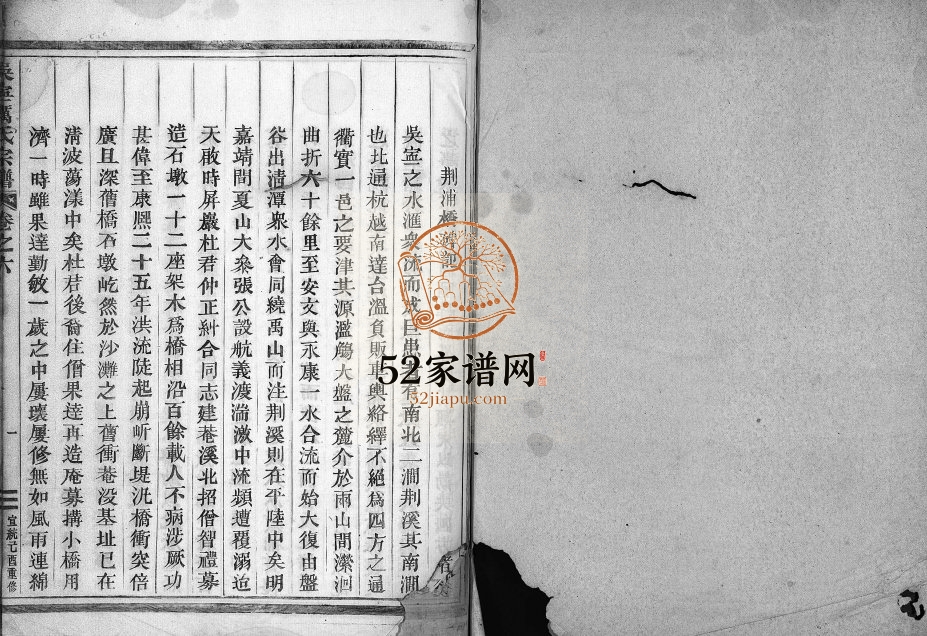 荆浦橋碑記
吳寧之水滙衆流而成巨患者有南北二澗荆溪其南澗
也北通杭越南達台溫負販車輿絡繹不絕爲四方之通
衢實一邑之要津其源濫觴大盤之麓介於兩山間瀠洄
曲折六十餘里至安文與永康一水合流而始大復由盤
谷出清潭衆水會同繞禹山而注荆溪則在平陸中矣明
嘉靖間夏山大參張公設航義渡湍激中流頻遭覆溺迨
天啟時屏巖杜君仲正糾合同志建菴溪北招僧智禮募
造石墩一十二座架木爲橋相沿百餘載人不病涉厥功
甚偉至康熙二十五年洪流陡起崩岸斷堤洗橋衝突倍
廣且深舊橋石墩屹然於沙灘之上舊衝菴没基址已在
清波蕩漾中矣杜君後裔住僧果達再造庵募搆小橋用
濟一時雖果達勤敏一歲之中屢壞屢修無如風雨連綿
吳寧厲氏宗譜 卷之六
一
宣統己酉重修
52家谱网
52jiapu.com